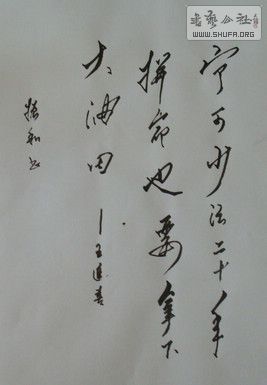 宁可少活二十年
拼命也要拿下
大油田
—王进喜
振和书
書藝公社
WWW.SHUFA.ORG